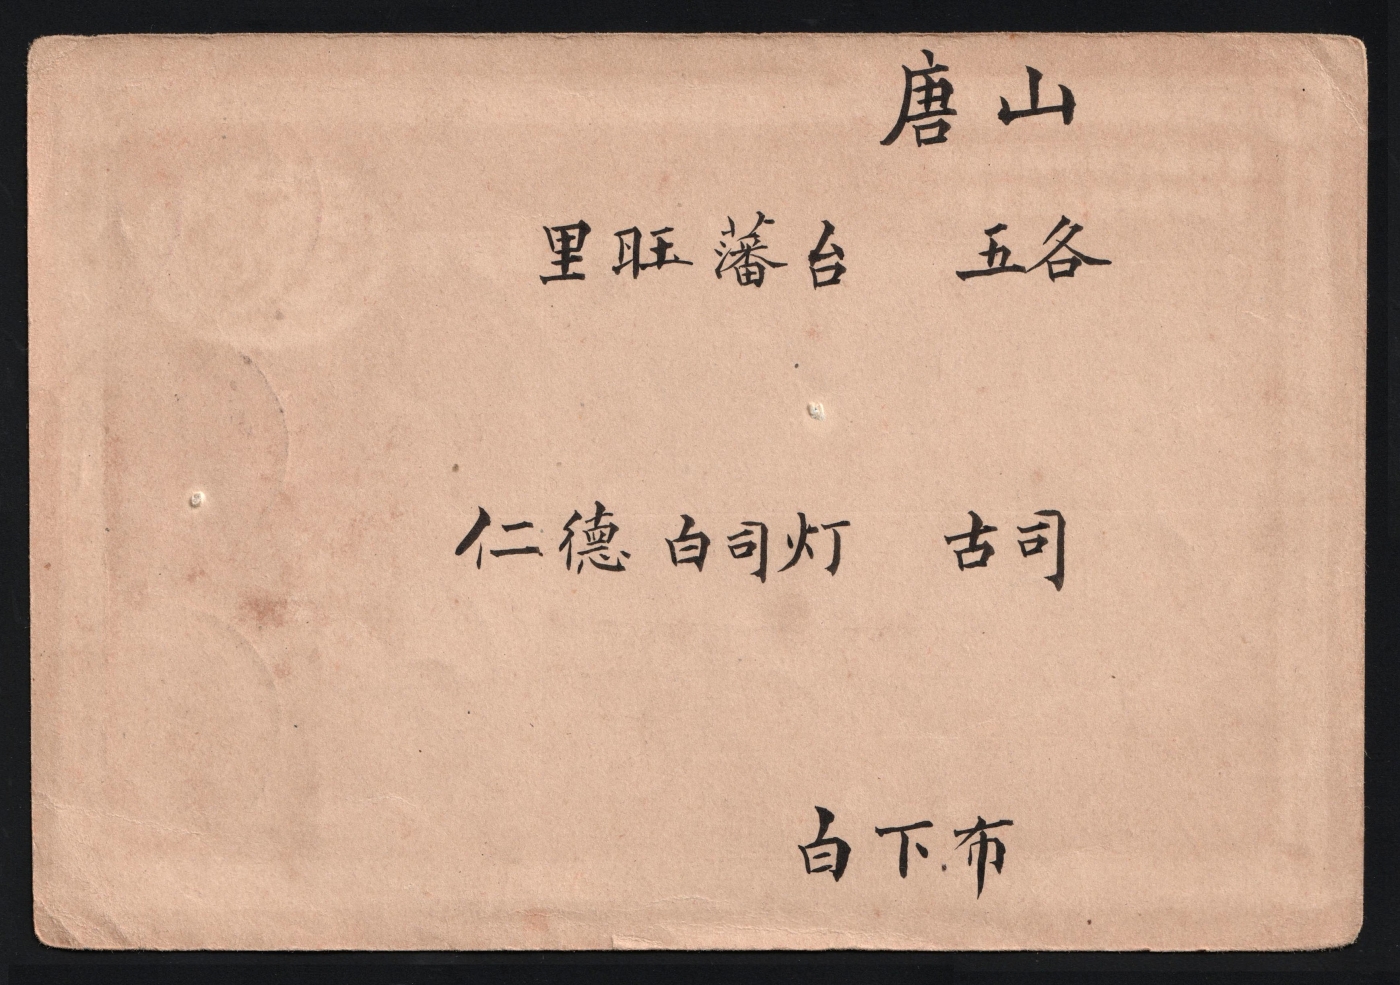 唐山
里旺藩台 五各
仁德白司灯 古司
白下布